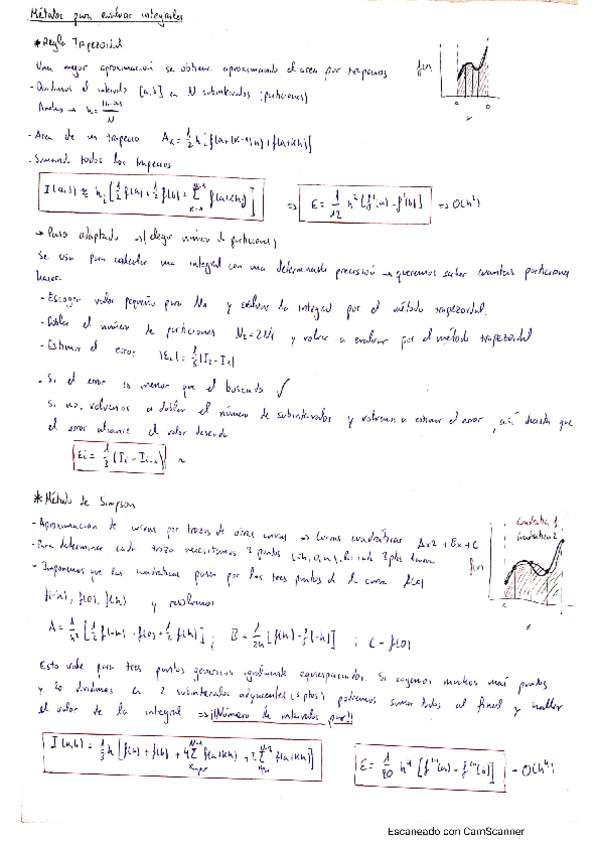 Métodos para evaluar integrales
* Regla Trapezoidal
Una mejor aproximación se obtiene aproximando el area por trapecios
f(x)
a b
x
- Dividimos el intervalo [a,b] en N subintervalos (particiones)
- Area de un trapecio A_k = 1/2 h [f(a+(k-1)h) + f(a+kh)]
- Sumando todos los trapecios
I(a,b) ≈ h [1/2 f(a) + 1/2 f(b) + Σ f(a+kh)] => E = 1/12 h² [f'(a) - f'(b)] => O(h²)
→ Paso adaptado → (elegir número de particiones)
Se usa para calcular una integral con una determinada precisión → queremos saber cuantas particiones
hacer.
- Escoger valor pequeño para N₁ y evaluar la integral por el método trapezoidal.
- Doblar el número de particiones N₂=2N₁ y volver a evaluar por el método trapezoidal
- Estimar el error |E₂| = 1/3 |I₂ - I₁|
- Si el error es menor que el buscado √
Si no, volvemos a doblar el número de subintervalos y volvemos a estimar el error, así hasta que
el error alcance el valor deseado
Ei = 1/3 (Ii - Ii-1)
* Método de Simpson
- Aproximación de curvas por trozos de otras curvas => Curvas cuadráticas Ax2 + Bx + C
- Para determinar cada trozo necesitamos 3 puntos (-h, 0, h)
cuadratica 1
cuadratica 2
f(x)
- Imponemos que las cuadraticas pasen por los tres puntos de la curva f(x)
f(-h), f(0), f(h) y resolvemos
x
A = 1/h² [1/2 f(-h) - f(0) + 1/2 f(h)] ; B = 1/2h [f(h) - f(-h)] ; C = f(0)
Esto vale para tres puntos genericos igualmente equiespaciados. Si cogemos muchos más puntos
y lo dividimos en 2 subintervalos adyacentes (3 ptos) podremos sumar todos al final y hallar
el valor de la integral => ¡¡Número de intervalos par!!
I(a,b) = 1/3 h [f(a) + f(b) + 4 Σ f(a+kh) + 2 Σ f(a+kh)]
E = 1/90 h⁴ [f'''(a) - f'''(b)] → O(h⁴)
Escaneado con CamScanner